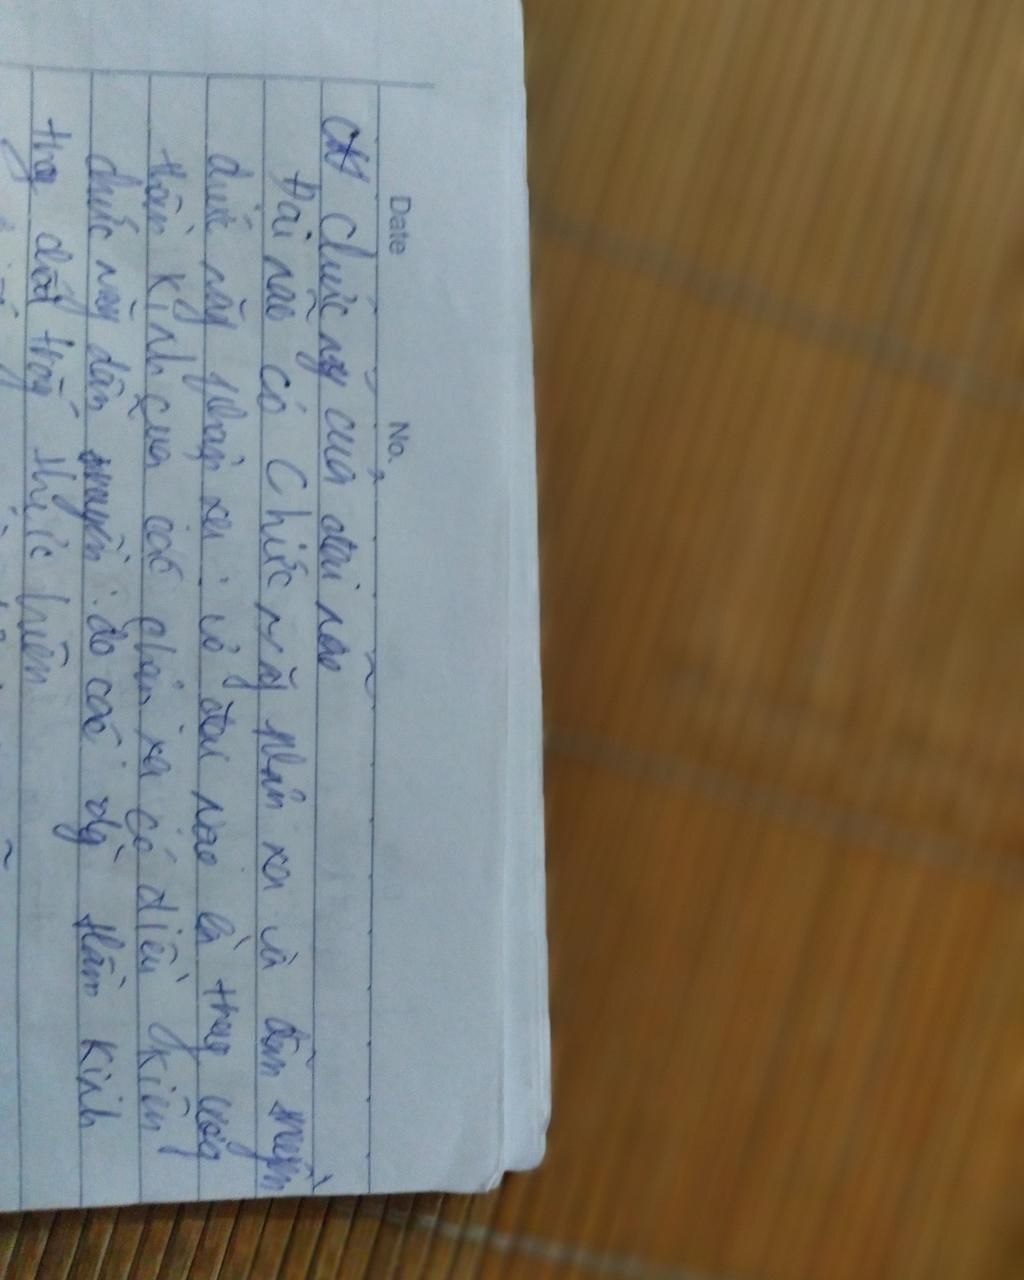 Date No.
Chức năng của đại não
Đại não có chức năng phản xạ và dẫn truyền
chức năng phản xạ: vỏ đại não là trung ương
thần kinh của các phản xạ có điều kiện
chức năng dẫn truyền: do các dây thần kinh
thực hiện